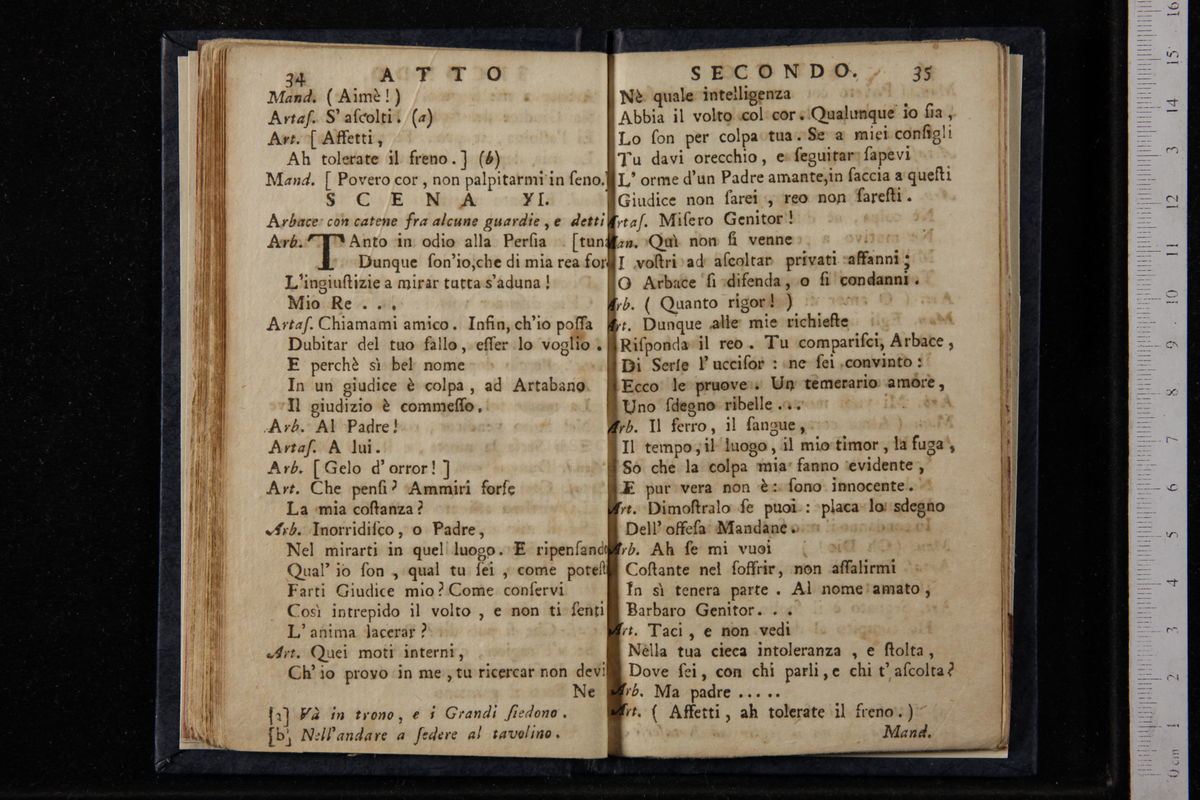 34 ATTO
Mand. (Aimè!)
Artaſ. S' aſcolti. (a)
Art. [ Affetti,
Ah tolerate il freno. ] (b)
Mand. [ Povero cor, non palpitarmi in ſeno.]
SCENA VI.
Arbace con catene fra alcune guardie, e detti
Arb. TAnto in odio alla Perſia [tuna
Dunque ſon'io, che di mia rea for-
L'ingiuſtizie a mirar tutta s'aduna!
Mio Re . . .
Artaſ. Chiamami amico. Infin, ch'io poſſa
Dubitar del tuo fallo, eſſer lo voglio.
E perchè sì bel nome
In un giudice è colpa, ad Artabano
Il giudizio è commeſſo.
Arb. Al Padre!
Artaſ. A lui.
Arb. [ Gelo d' orror! ]
Art. Che penſi? Ammiri forſe
La mia coſtanza?
Arb. Inorridiſco, o Padre,
Nel mirarti in quel luogo. E ripenſando
Qual' io ſon, qual tu ſei, come poteſti
Farti Giudice mio? Come conſervi
Così intrepido il volto, e non ti ſenti
L' anima lacerar?
Art. Quei moti interni,
Ch' io provo in me, tu ricercar non devi
Ne
[a] Và in trono, e i Grandi ſiedono.
[b] Nell'andare a ſedere al tavolino.
SECONDO. 35
Nè quale intelligenza
Abbia il volto col cor. Qualunque io ſia,
Lo ſon per colpa tua. Se a miei conſigli
Tu davi orecchio, e ſeguitar ſapevi
L' orme d'un Padre amante, in faccia a queſti
Giudice non ſarei, reo non ſareſti.
Artaſ. Miſero Genitor!
Man. Quì non ſi venne
I voſtri ad aſcoltar privati affanni;
O Arbace ſi difenda, o ſi condanni.
Arb. ( Quanto rigor! )
Art. Dunque alle mie richieſte
Riſponda il reo. Tu compariſci, Arbace,
Di Serſe l' ucciſor: ne ſei convinto:
Ecco le pruove. Un temerario amore,
Uno ſdegno ribelle...
Arb. Il ferro, il ſangue,
Il tempo, il luogo, il mio timor, la fuga,
So che la colpa mia fanno evidente,
E pur vera non è: ſono innocente.
Art. Dimoſtralo ſe puoi: placa lo sdegno
Dell' offeſa Mandane.
Arb. Ah ſe mi vuoi
Coſtante nel ſoffrir, non aſſalirmi
In sì tenera parte. Al nome amato,
Barbaro Genitor. . .
Art. Taci, e non vedi
Nella tua cieca intoleranza, e ſtolta,
Dove ſei, con chi parli, e chi t' aſcolta?
Arb. Ma padre .....
Art. ( Affetti, ah tolerate il freno.)
Mand.
16
15
14
13
12
11
10
9
8
7
6
5
4
3
2
1
0 cm